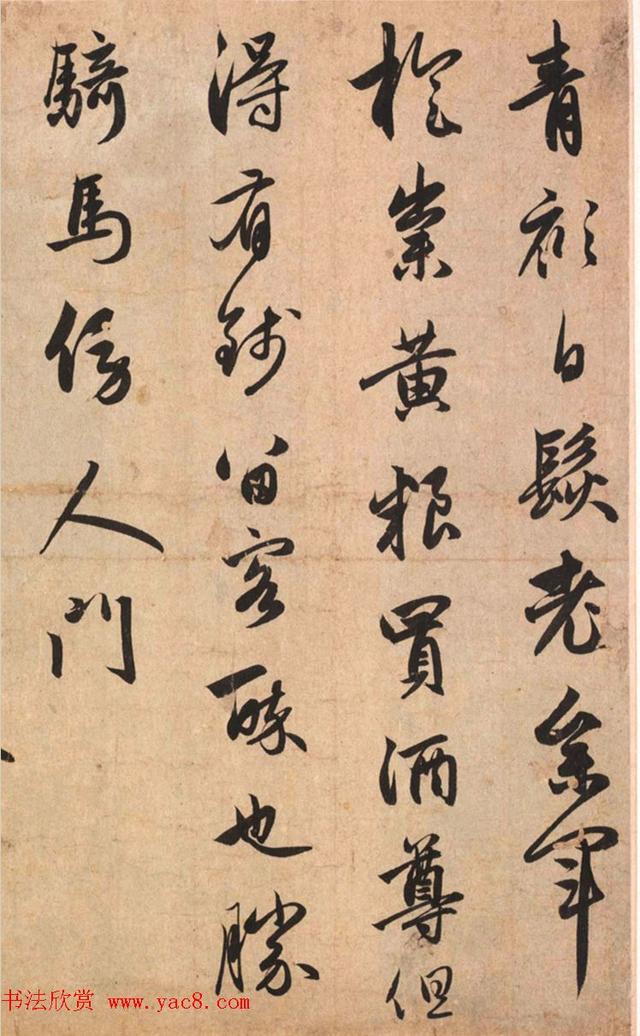 青顔白髮老參軍
旋粜黃粮買酒尊但
得有錢留客醉也勝
騎馬傍人門
书法欣赏 www.yac8.com